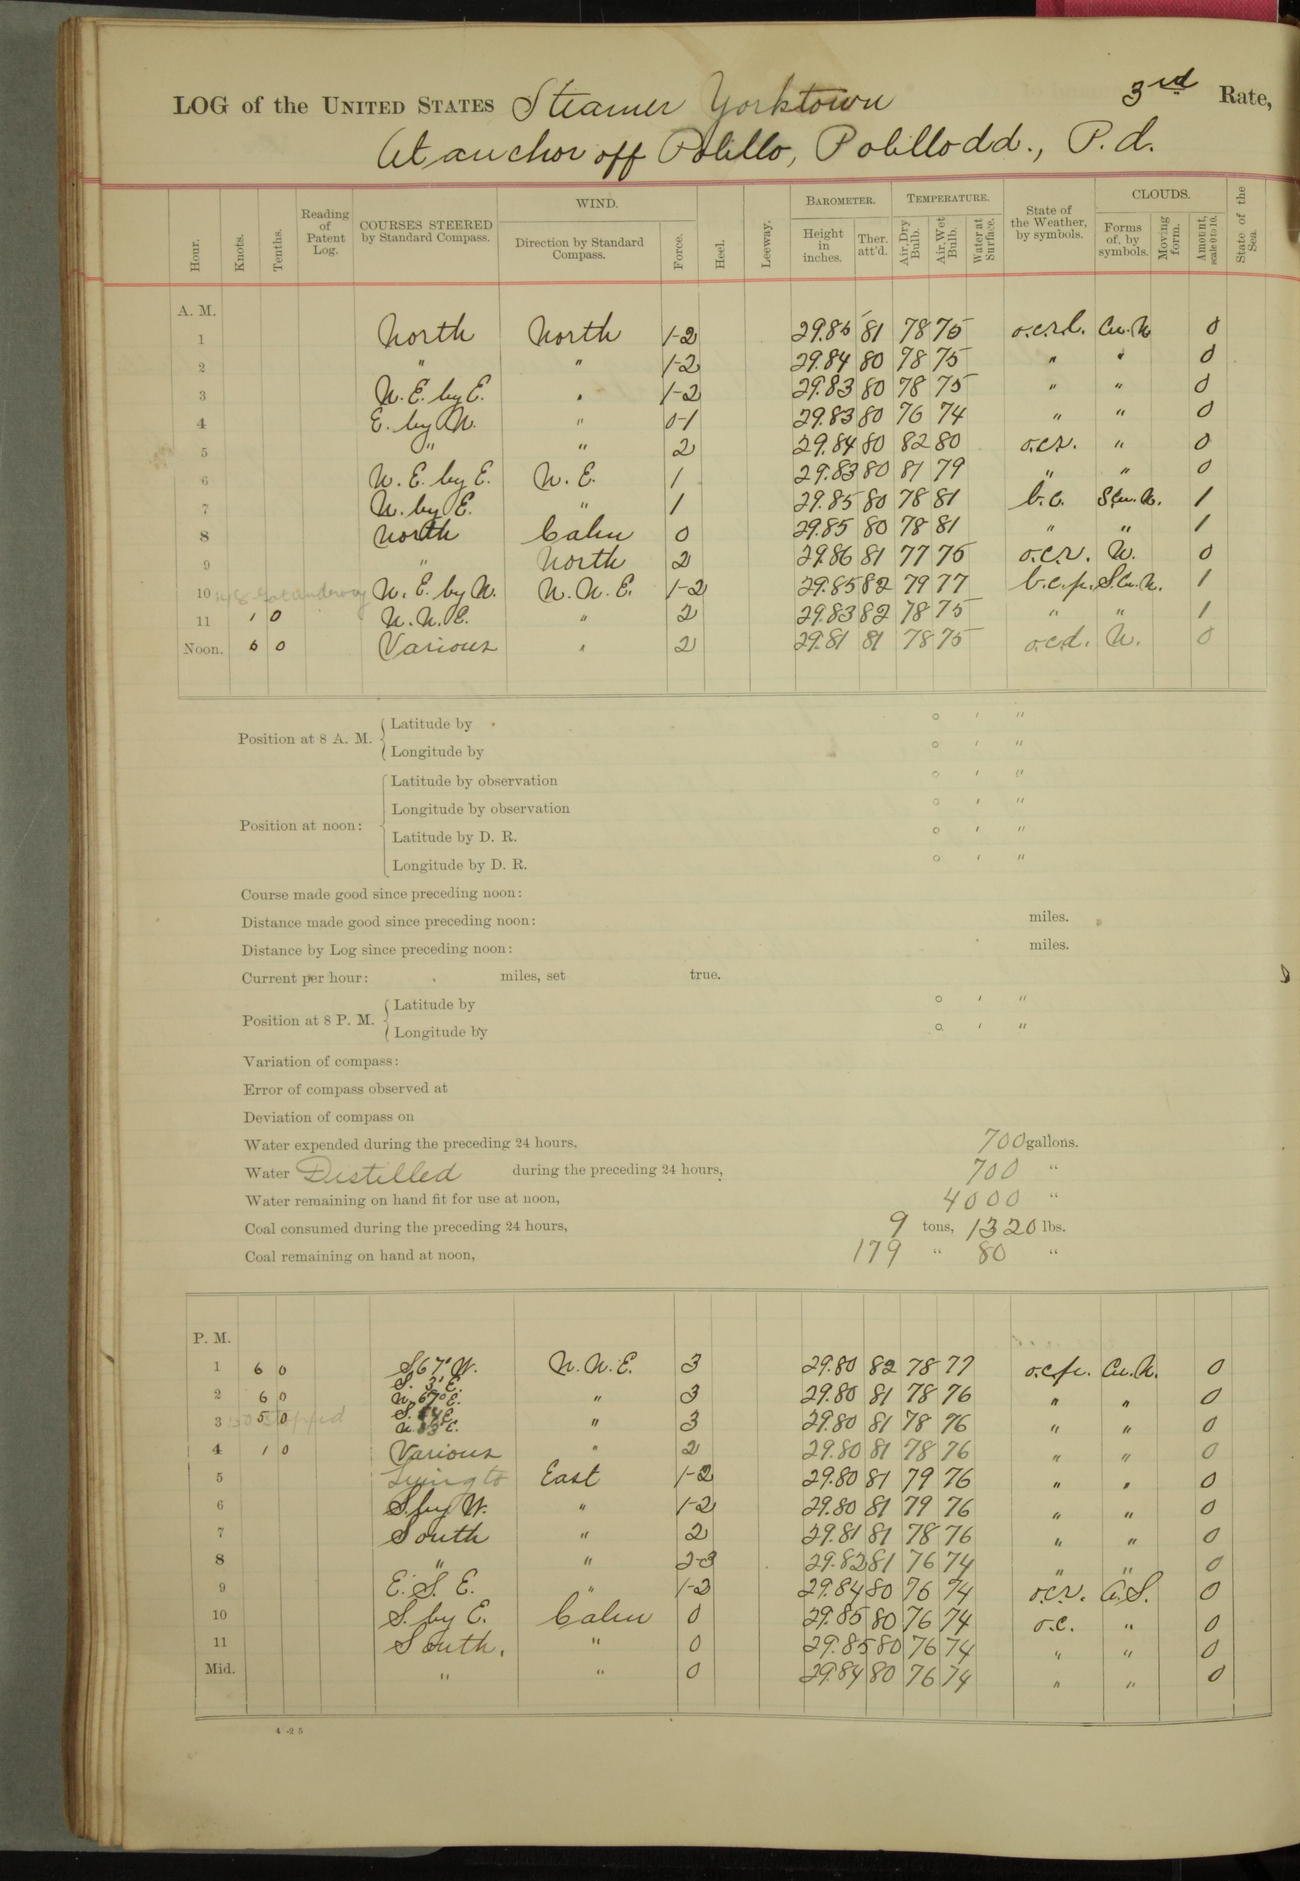 LOG of the UNITED STATES Steamer Yorktown 3rd Rate,
At anchor off Polillo, Polillo dd., P. d.
Hour. Knots. Tenths. Reading of Patent Log. COURSES STEERED by Standard Compass. WIND. Direction by Standard Compass. Force. Heel. Leeway. BAROMETER. Height in inches. Ther. att'd. TEMPERATURE. Air, Dry Bulb. Air, Wet Bulb. Water at Surface. State of the Weather, by symbols. CLOUDS. Forms of, by symbols. Moving form. Amount, scale 0 to 10. State of the Sea.
A. M.
1 North North 1-2 29.85 81 78 75 o.c.r.l. Cu.N. 0
2 " " 1-2 29.84 80 78 75 " " 0
3 N.E. by E. " 1-2 29.83 80 78 75 " " 0
4 E. by N. " 0-1 29.83 80 76 74 " " 0
5 " " 2 29.84 80 82 80 o.c.r. " 0
6 N.E. by E. N.E. 1 29.83 80 81 79 " " 0
7 N. by E. " 1 29.85 80 78 81 b.c. S.Cu.N. 1
8 North Calm 0 29.85 80 78 81 " " 1
9 " North 2 29.86 81 77 75 o.c.r. N. 0
10 Got underway N.E. by N. N.N.E. 1-2 29.85 82 79 77 b.c.p. S.Cu.N. 1
11 1 0 N.N.E. " 2 29.83 82 78 75 " " 1
Noon. 6 0 Various " 2 29.81 81 78 75 o.c.d. N. 0
Position at 8 A. M. Latitude by ° ' "
Longitude by ° ' "
Position at noon: Latitude by observation ° ' "
Longitude by observation ° ' "
Latitude by D. R. ° ' "
Longitude by D. R. ° ' "
Course made good since preceding noon:
Distance made good since preceding noon: miles.
Distance by Log since preceding noon: miles.
Current per hour: miles, set true.
Position at 8 P. M. Latitude by ° ' "
Longitude by ° ' "
Variation of compass:
Error of compass observed at
Deviation of compass on
Water expended during the preceding 24 hours, 700 gallons.
Water Distilled during the preceding 24 hours, 700 "
Water remaining on hand fit for use at noon, 4000 "
Coal consumed during the preceding 24 hours, 9 tons, 1320 lbs.
Coal remaining on hand at noon, 179 " 80 "
P. M.
1 6 0 S.67°W. N.N.E. 3 29.80 82 78 77 o.c.p. Cu.N. 0
S. 3° E.
2 6 0 N. 67° E. " 3 29.80 81 78 76 " " 0
3 5 0 stopped " 3 29.80 81 78 76 " " 0
4 1 0 Various " 2 29.80 81 78 76 " " 0
5 Lying to East 1-2 29.80 81 79 76 " " 0
6 S. by W. " 1-2 29.80 81 79 76 " " 0
7 South " 2 29.81 81 78 76 " " 0
8 " " 2-3 29.82 81 76 74 " " 0
9 E.S.E. " 1-2 29.84 80 76 74 o.c.r. C.S. 0
10 S. by E. Calm 0 29.85 80 76 74 o.c. " 0
11 South. " 0 29.85 80 76 74 " " 0
Mid. " " 0 29.84 80 76 74 " " 0
4-25